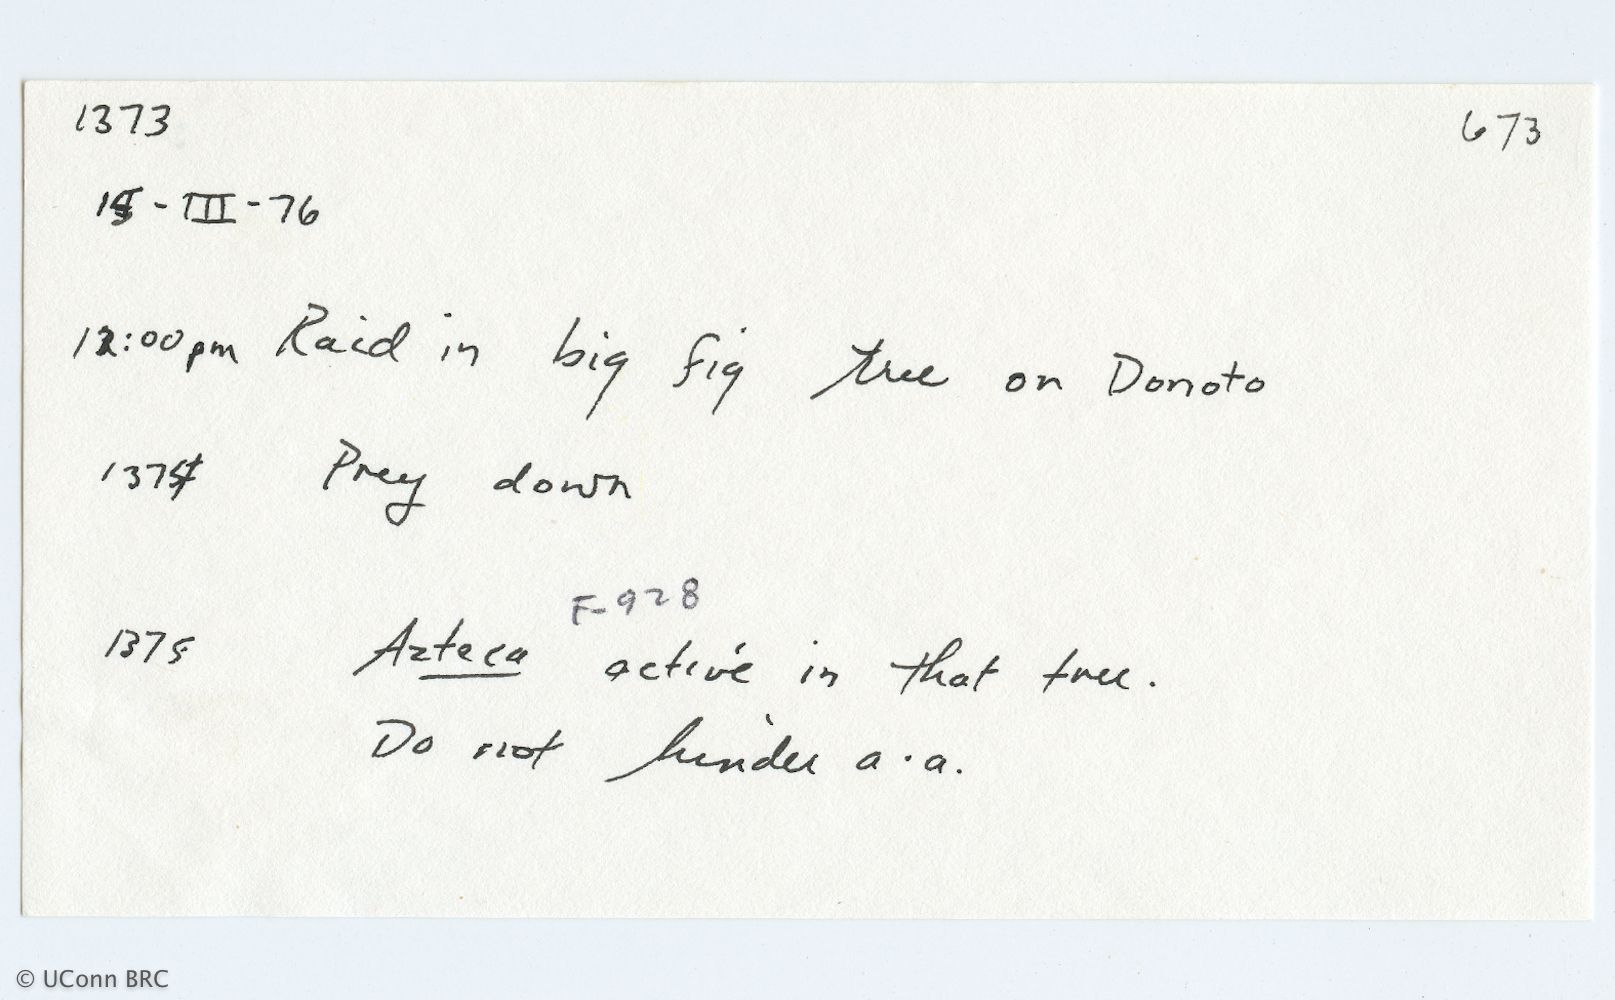 1373 673
15-III-76
12:00pm Raid in big fig tree on Donato
1374 Prey down
F-928
1375 Azteca active in that tree.
Do not hinder a.a.
© UConn BRC